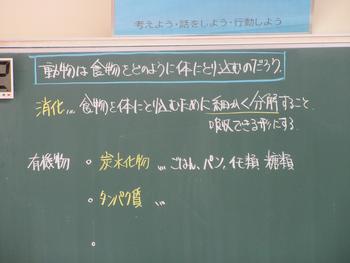 考えよう・話をしよう・行動しよう
動物は食物をどのように体にとり込むのだろう。
消化… 食物を体にとり込むために細かく分解すること。
吸収できる形にする。
有機物 。炭水化物 … ごはん、パン、イモ類、糖類
。タンパク質 …
。